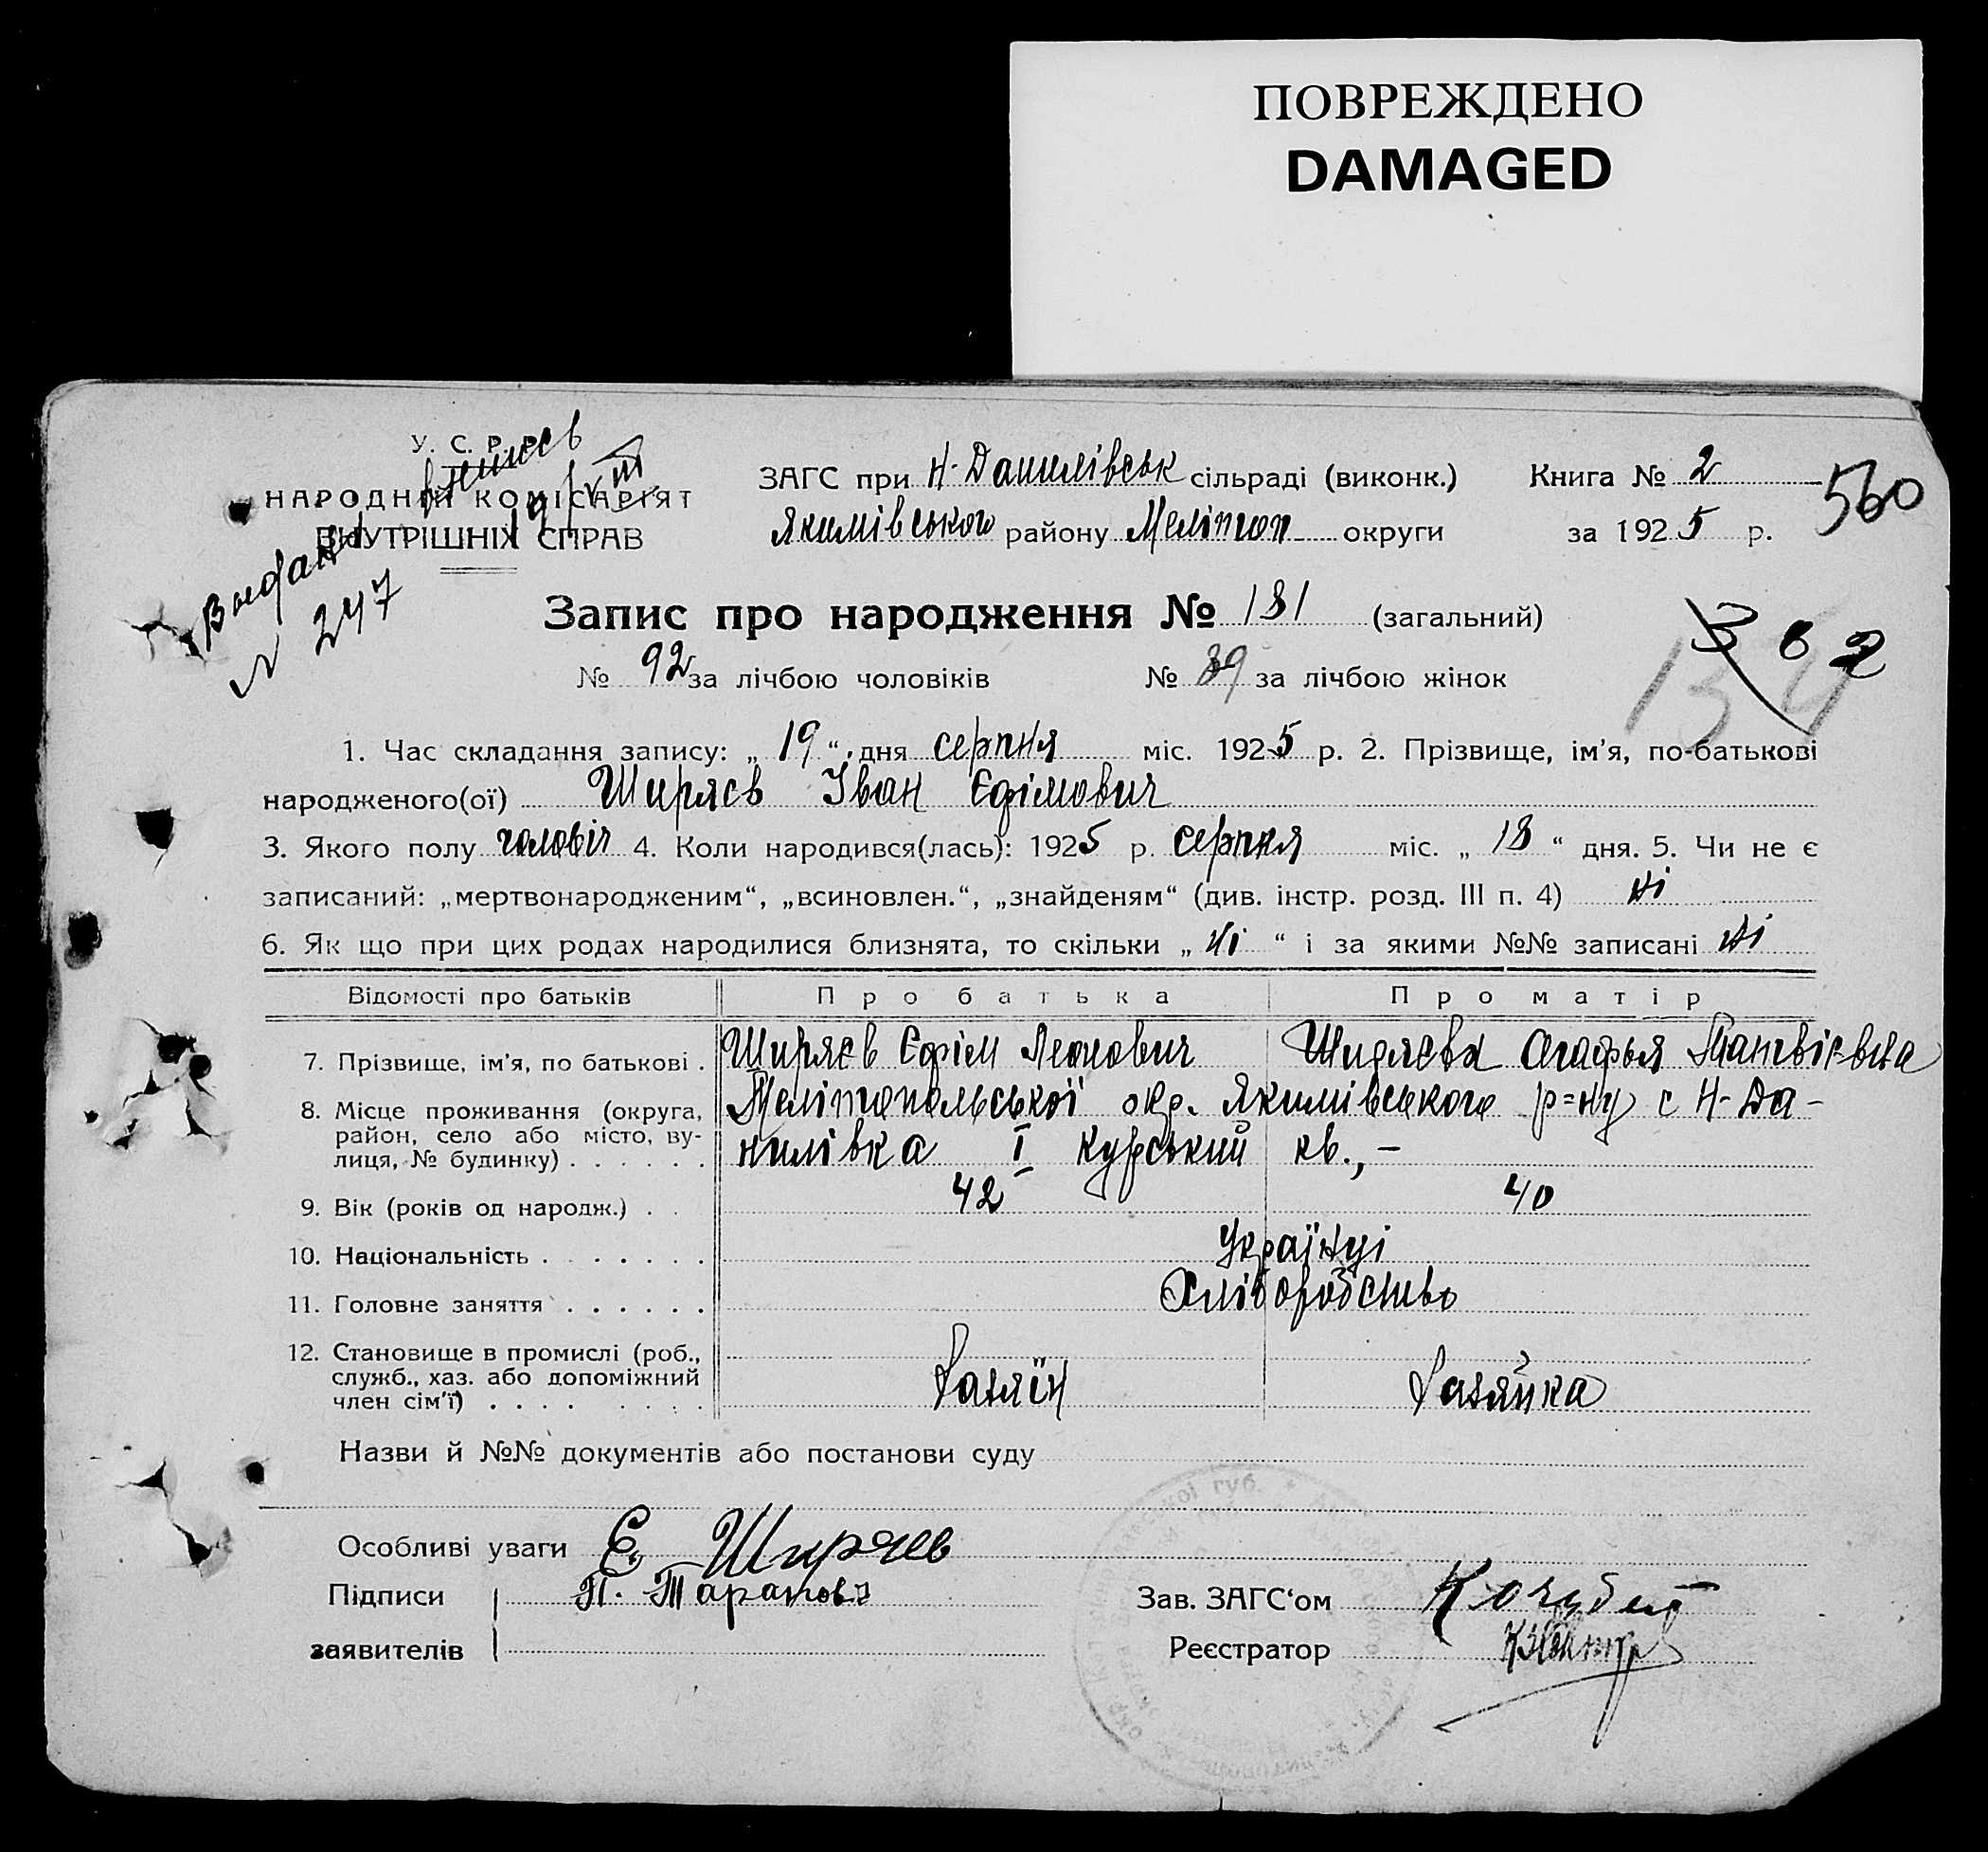 ПОВРЕЖДЕНО
DAMAGED
У. С. Р. Р.
НАРОДНІЙ КОМІСАРІЯТ
ВНУТРІШНІХ СПРАВ
N 247
ЗАГС при Н-Данилівськ сільраді (виконк.)
Якимівського району Мелітоп округи
Книга № 2
за 1925 р.
560
Запис про народження № 181 (загальний)
№ 92 за лічбою чоловіків № 89 за лічбою жінок
362
134
1. Час складання запису: „ 19 “ дня серпня міс. 1925 р. 2. Прізвище, ім’я, по-батькові
народженого(ої) Ширяєв Іван Єфімович
3. Якого полу чоловіч 4. Коли народився(лась): 1925 р. серпня міс. „ 18 “ дня. 5. Чи не є
записаний: „мертвонародженим“, „всиновлен.“, „знайденям“ (див. інстр. розд. III п. 4) ні
6. Як що при цих родах народилися близнята, то скільки „ ні “ і за якими №№ записані ні
Відомості про батьків Про батька Про матір
7. Прізвище, ім’я, по батькові . Ширяєв Єфім Леонович Ширяєва Агафья
8. Місце проживання (округа, район, село або місто, вулиця, № будинку) . . . . . . Мелітопольської окр. Якимівського р=ну с Н-Да-
нилівка І курський кв.,-
9. Вік (років од народж.) . . 42 40
10. Національність . . . . . . . Українці
11. Головне заняття . . . . . . Хліборобство
12. Становище в промислі (роб., служб., хаз. або допоміжний член сім’ї) . . . . . . . . Хазяїн Хазяйка
Назви й №№ документів або постанови суду
Особливі уваги Е. Ширяев
Підписи
заявителів
Зав. ЗАГС‘ом Кочубей
Реєстратор